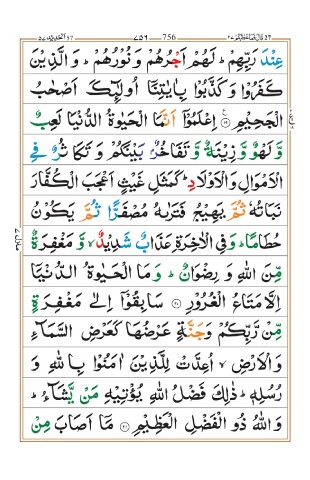 756 ۷۵۶
عِنْدَ رَبِّهِمْ ؕ لَهُمْ اَجْرُهُمْ وَ نُوْرُهُمْ ؕ وَ الَّذِیْنَ
كَفَرُوْا وَ كَذَّبُوْا بِاٰیٰتِنَاۤ اُولٰٓىِٕكَ اَصْحٰبُ
الْجَحِیْمِ ۟ اِعْلَمُوْۤا اَنَّمَا الْحَیٰوةُ الدُّنْیَا لَعِبٌ
وَّ لَهْوٌ وَّ زِیْنَةٌ وَّ تَفَاخُرٌۢ بَیْنَكُمْ وَ تَكَاثُرٌ فِی
الْاَمْوَالِ وَ الْاَوْلَادِ ؕ كَمَثَلِ غَیْثٍ اَعْجَبَ الْكُفَّارَ
نَبَاتُهٗ ثُمَّ یَهِیْجُ فَتَرٰىهُ مُصْفَرًّا ثُمَّ یَكُوْنُ
حُطَامًا ؕ وَ فِی الْاٰخِرَةِ عَذَابٌ شَدِیْدٌ ۙ وَّ مَغْفِرَةٌ
مِّنَ اللّٰهِ وَ رِضْوَانٌ ؕ وَ مَا الْحَیٰوةُ الدُّنْیَاۤ
اِلَّا مَتَاعُ الْغُرُوْرِ ۟ سَابِقُوْۤا اِلٰی مَغْفِرَةٍ
مِّنْ رَّبِّكُمْ وَ جَنَّةٍ عَرْضُهَا كَعَرْضِ السَّمَآءِ
وَ الْاَرْضِ ۙ اُعِدَّتْ لِلَّذِیْنَ اٰمَنُوْا بِاللّٰهِ وَ
رُسُلِهٖ ؕ ذٰلِكَ فَضْلُ اللّٰهِ یُؤْتِیْهِ مَنْ یَّشَآءُ ؕ
وَ اللّٰهُ ذُو الْفَضْلِ الْعَظِیْمِ ۟ مَاۤ اَصَابَ مِنْ